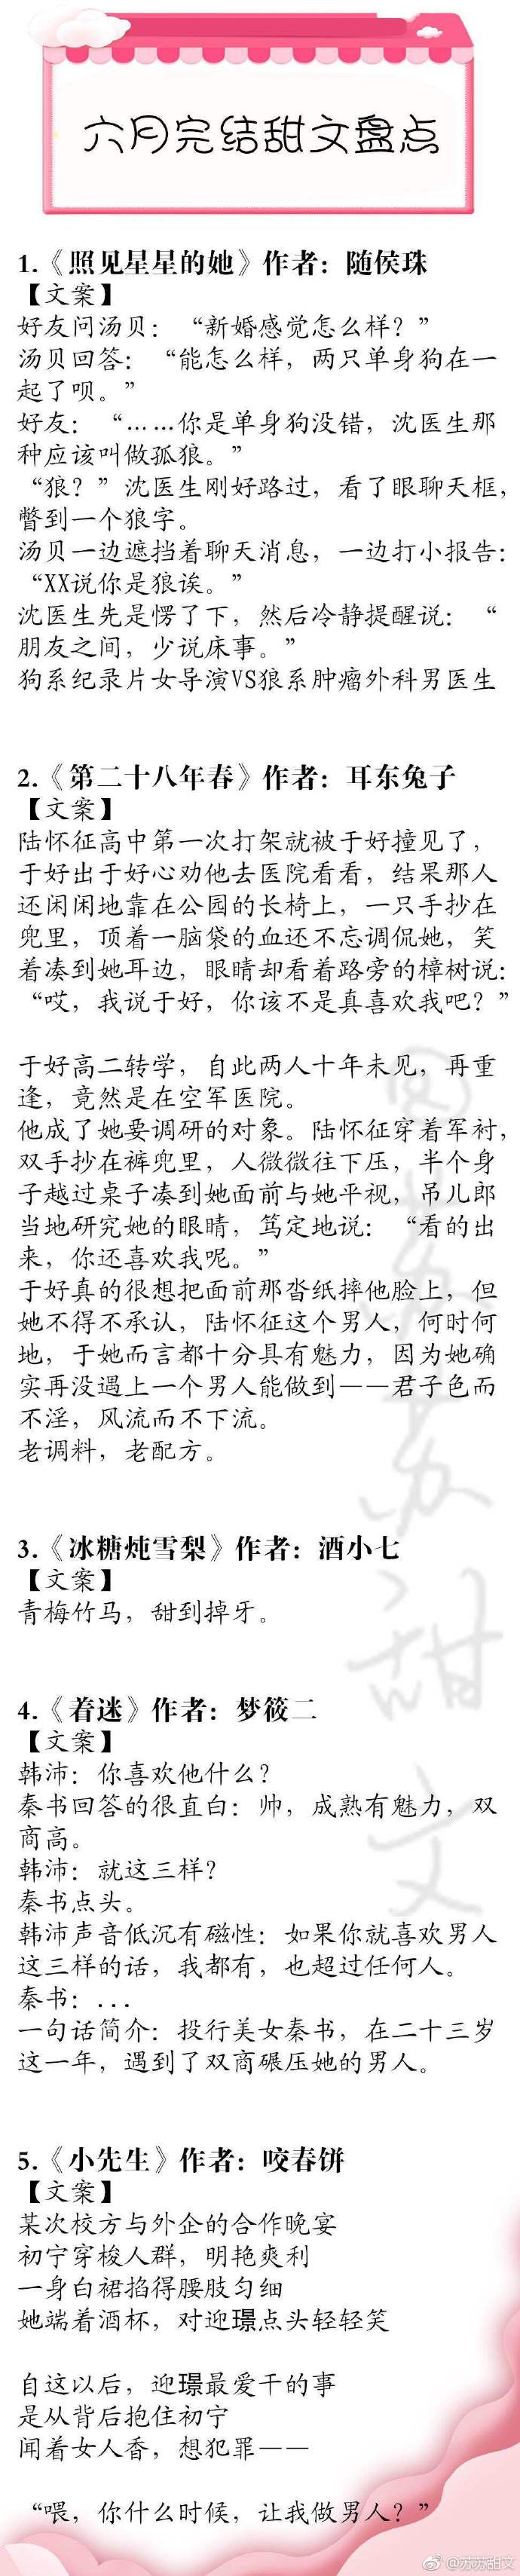 六月完结甜文盘点
1.《照见星星的她》作者：随侯珠
【文案】
好友问汤贝：“新婚感觉怎么样？”
汤贝回答：“能怎么样，两只单身狗在一
起了呗。”
好友：“……你是单身狗没错，沈医生那
种应该叫做孤狼。”
“狼？”沈医生刚好路过，看了眼聊天框，
瞥到一个狼字。
汤贝一边遮挡着聊天消息，一边打小报告：
“XX说你是狼诶。”
沈医生先是愣了下，然后冷静提醒说：“
朋友之间，少说床事。”
狗系纪录片女导演VS狼系肿瘤外科男医生
2.《第二十八年春》作者：耳东兔子
【文案】
陆怀征高中第一次打架就被于好撞见了，
于好出于好心劝他去医院看看，结果那人
还闲闲地靠在公园的长椅上，一只手抄在
兜里，顶着一脑袋的血还不忘调侃她，笑
着凑到她耳边，眼睛却看着路旁的樟树说：
“哎，我说于好，你该不是真喜欢我吧？”
于好高二转学，自此两人十年未见，再重
逢，竟然是在空军医院。
他成了她要调研的对象。陆怀征穿着军衬，
双手抄在裤兜里，人微微往下压，半个身
子越过桌子凑到她面前与她平视，吊儿郎
当地研究她的眼睛，笃定地说：“看的出
来，你还喜欢我呢。”
于好真的很想把面前那沓纸摔他脸上，但
她不得不承认，陆怀征这个男人，何时何
地，于她而言都十分具有魅力，因为她确
实再没遇上一个男人能做到——君子色而
不淫，风流而不下流。
老调料，老配方。
3.《冰糖炖雪梨》作者：酒小七
【文案】
青梅竹马，甜到掉牙。
4.《着迷》作者：梦筱二
【文案】
韩沛：你喜欢他什么？
秦书回答的很直白：帅，成熟有魅力，双
商高。
韩沛：就这三样？
秦书点头。
韩沛声音低沉有磁性：如果你就喜欢男人
这三样的话，我都有，也超过任何人。
秦书：...
一句话简介：投行美女秦书，在二十三岁
这一年，遇到了双商碾压她的男人。
5.《小先生》作者：咬春饼
【文案】
某次校方与外企的合作晚宴
初宁穿梭人群，明艳爽利
一身白裙掐得腰肢匀细
她端着酒杯，对迎璟点头轻轻笑
自这以后，迎璟最爱干的事
是从背后抱住初宁
闻着女人香，想犯罪——
“喂，你什么时候，让我做男人？”
苏苏甜文
@苏苏甜文